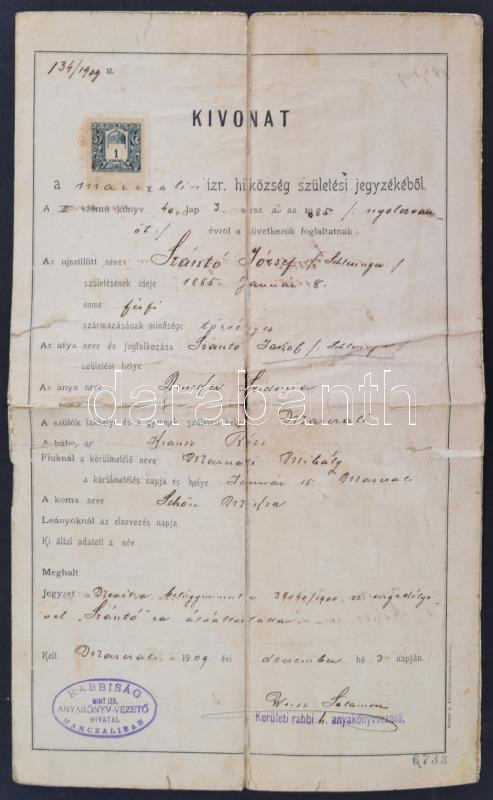 134/1909 sz.
KIVONAT
1
KORONA
a marczali izr. hitközség születési jegyzékéből.
A II számú könyv 40. lap 3. sorsz. a. az 1885 /: nyolczvan-
öt :/ évről a következők foglaltatnak
Az ujszülött neve Szántó József /: Schlesinger :/
születésének ideje 1885. Január 8.
neme férfi
származásának minősége törvényes
Az atya neve és foglalkozása Szántó Jakab /: Schlesinger :/
születési helye
Az anya neve Sidonia
A szülők lakhelyi és a gyermek születési helye Marczali
A bába neve Krausz Rézi
Fiuknál a körülmetélő neve Marczali Mihály
a körülmetélés napja és helye Január 15. Marczali
A koma neve Schön Miksa
Leányoknál az elnevezés napja
Ki által adatott a név
Meghalt
Jegyzet Nevét a belügyminist. a 38040/1900. sz. engedélyé-
vel „Szántó"-ra átváltoztatta.
Kelt Marczali 1909 évi december hó 3 napján.
RABBISÁG
MINT IZR.
ANYAKÖNYV-VEZETŐ
HIVATAL
MARCZALIBAN
Weisz Salamon
Kerületi rabbi h. anyakönyvvezető.
6733
darabanth